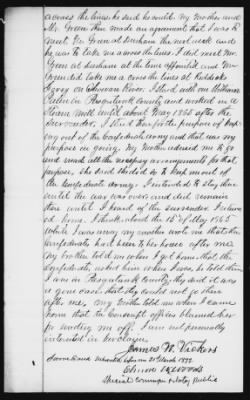 across the lines, he said he would. My mother and
Mr Green then made an agreement that I was to
meet Mr Green at Durham the next week and
he was to take me across the lines. I did meet Mr
Green at Durham at the time appointed and Mr
Green did take me across the lines at
Ferry on Chowan River. I staid with one William
in Pasquotank County and worked in a
Steam Mill until about May 1865 after the
surrender, I staid there for the purpose of keep-
ing out of the Confederate army and that was my
purpose in going. My Mother advised me to go
and made all the necessary arrangements for that
purpose. She said she did so to keep me out of
the Confederate army. I intended to stay there
until the war was over and did remain
there until I heard of the surrender. I return-
ed home. I think about the 15th of May 1865
While I was away my mother wrote me that the
Confederates had been to her house after me
my brother told me when I got home that the
Confederates asked him where I was, he told them
I was in Pasquotank County, they said it was
a good that they could not go there
after me, my Mother told me when I came
home that the Conscript officers blamed her
for sending me off. I am not personally
interested in
James W. Vickers
Sworn to and subscribed before me 21st March 1892
Special Commr & Notary Public